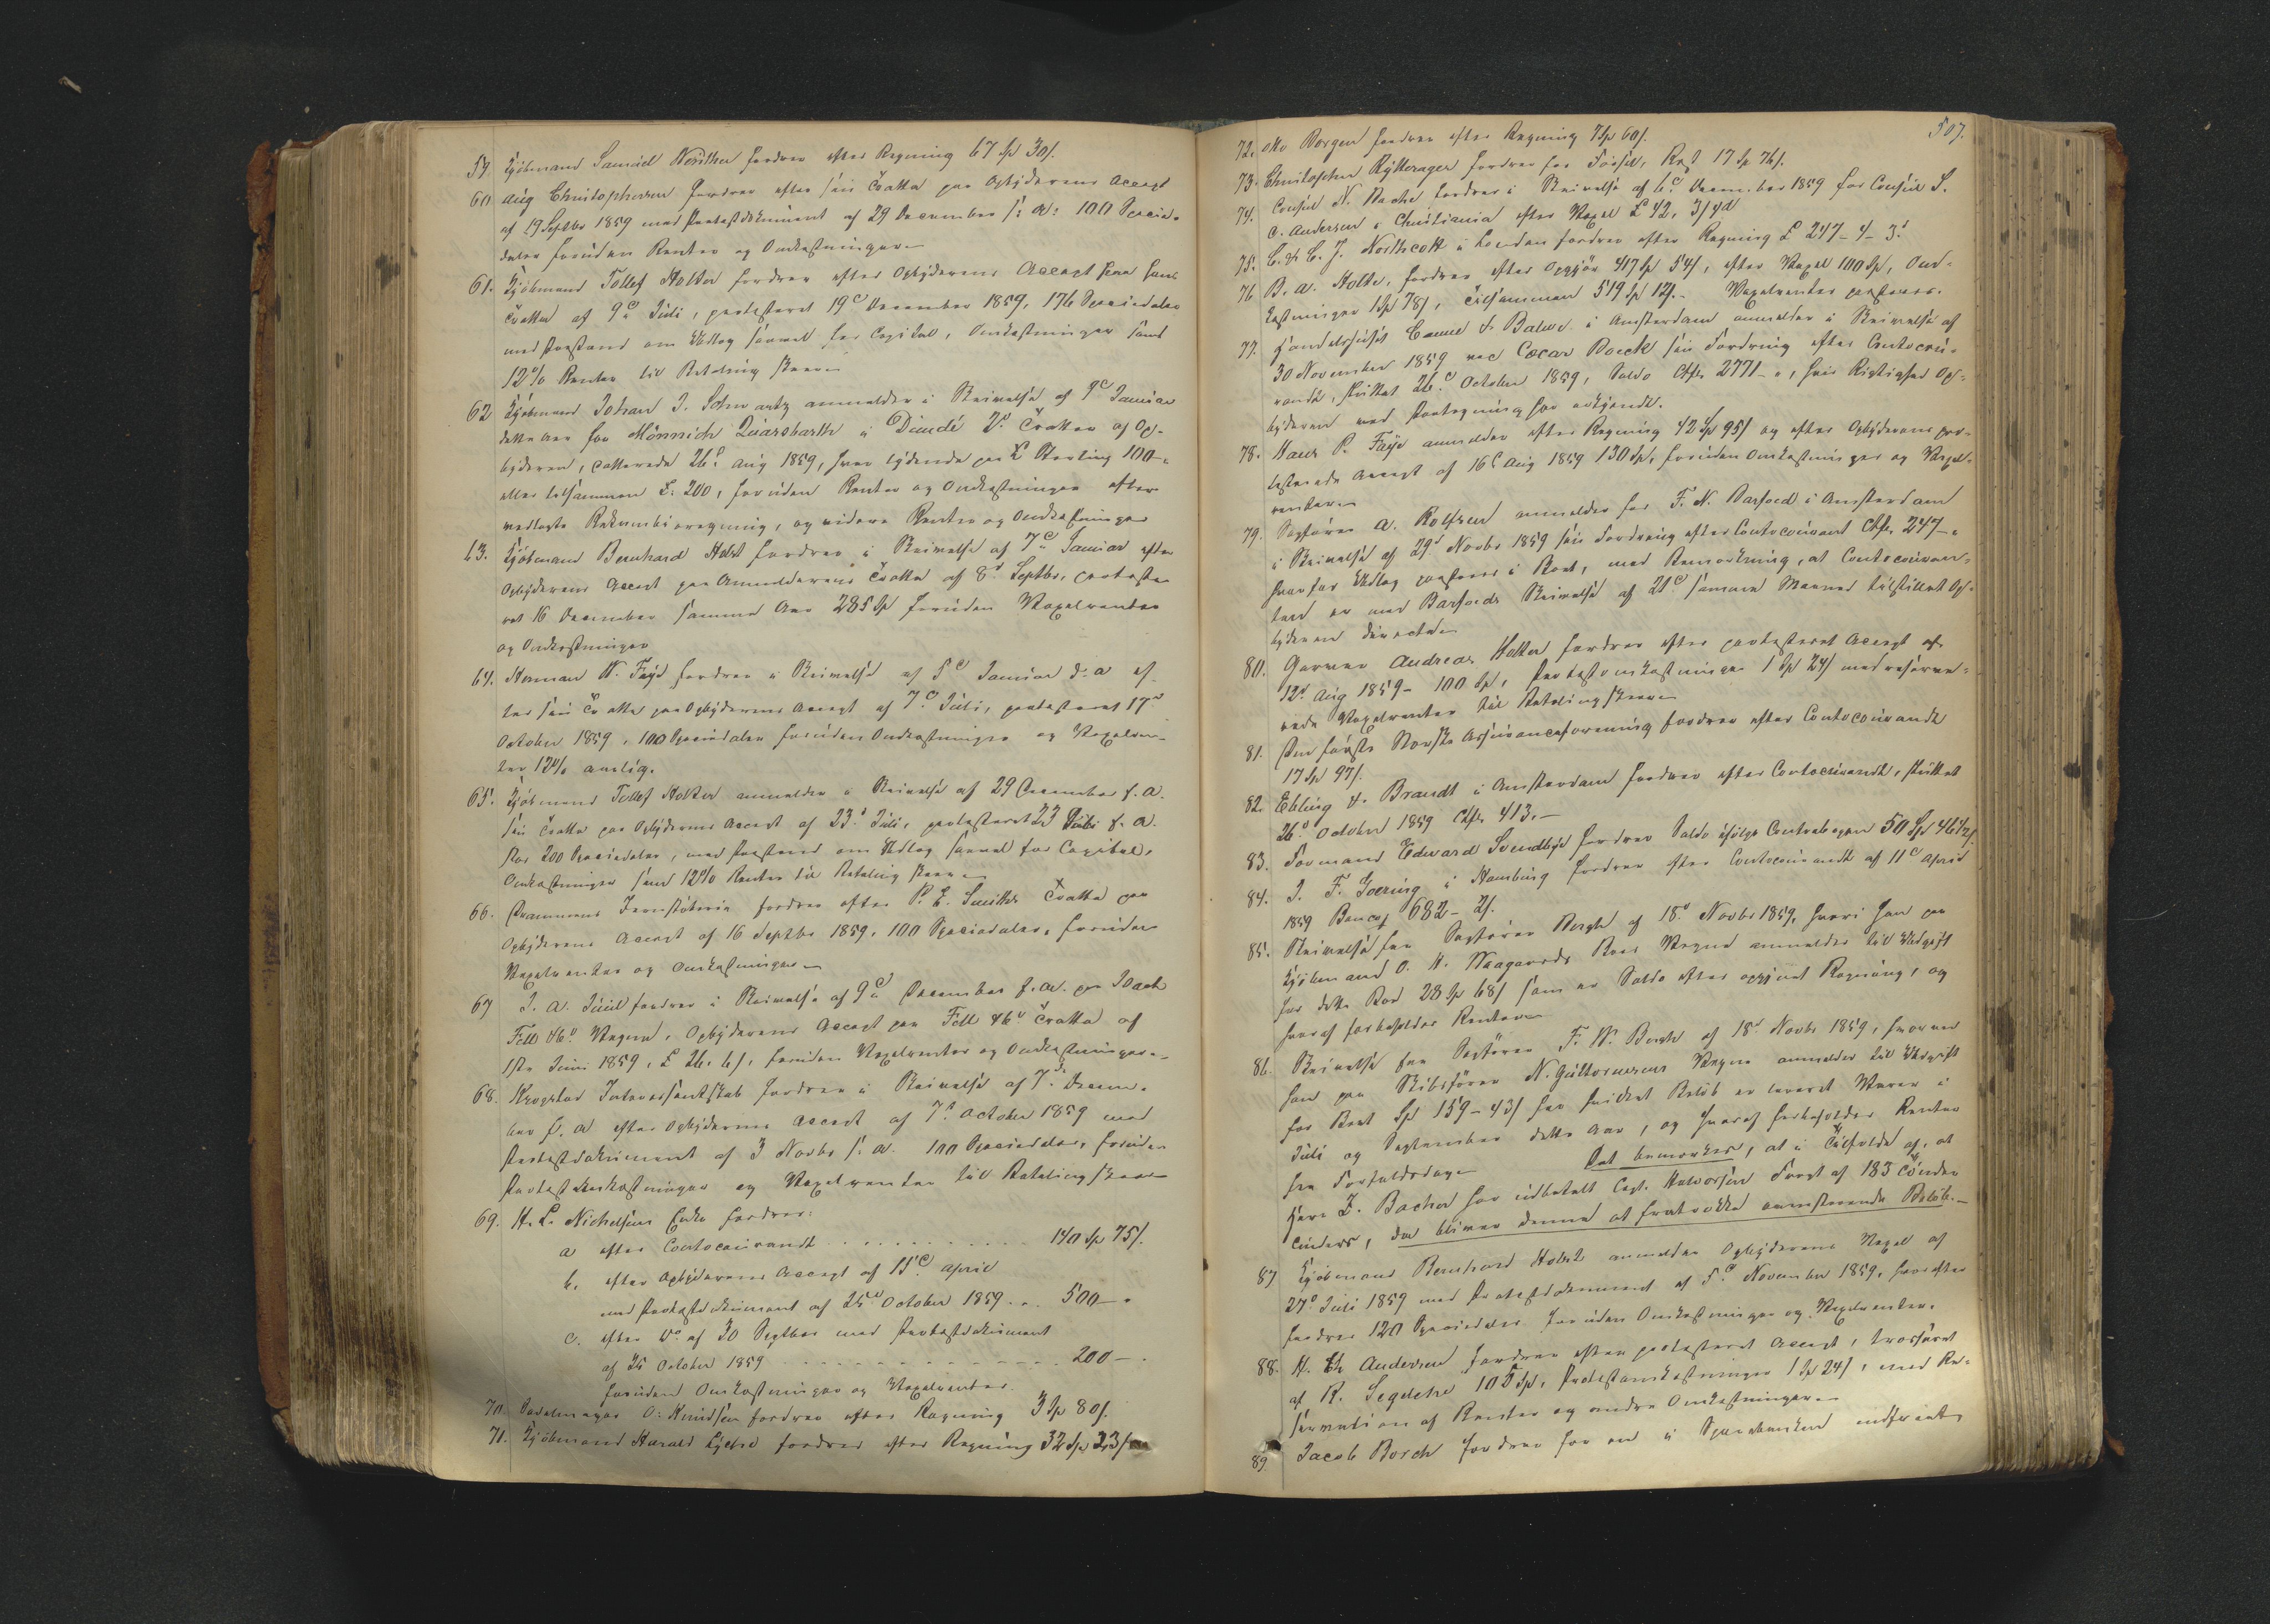 59. Kjöbmand Samuel fordrer efter Regning 67 Sp 30 s.
60 Aug Christophersen fordrer efter sin Tratta paa Opbyderens Accept
af 19 Septbr 1859 med Protestdokument af 29 December s: A: 100 Specie-
daler foruden Renter og Omkostninger
61. Kjöbmand Tollef Holter fordrer efter Opbyderens Accept paa hans
Tratta af 9de Juli, protesteret 19de December 1859, 176 Speciedaler
med Paastand om Udlæg saavel for Capital, Omkostninger samt
12% Renter til Betaling skeer
62 Kjöbmand Johan J. Schwartz anmelder i Skrivelse af 9de Januar
dette Aar for Mönnich i Dundé 2de Tratter af Op-
byderen, datterede 26de Aug 1859, hver lydende paa £ Sterling 100 -
eller tilsammen £: 200, foruden Renter og Omkostninger efter
vedlagte Rekambioregning, og videre Renter og Omkostninger
63. Kjöbmand Bernhard Holst fordrer i Skrivelse af 7de Januar efter
Opbyderens Accept paa Anmelderens Tratta af 8de Septbr, proteste-
ret 16 December samme Aar 285 Sp foruden Vexelrenter
og Omkostninger
64. Herman W. Faye fordrer i Skrivelse af 5de Januar d: A ef-
ter sin Tratta paa Opbyderens Accept af 7de Juli, protesteret 17de
October 1859, 100 Speciedaler foruden Omkostninger og Vexelren-
ter 12% aarlig.
65. Kjöbmand Tollef Holter anmelder i Skrivelse af 29 December f. A.
sin Tratta paa Opbyderens Accept af 23de Juli, protesteret 23 f. A.
stor 200 Speciedaler, med Paastand om Udlæg saavel for Capital,
Omkostninger samt 12% Renter til Betaling skeer
66. Drammens Jernstöberie fordrer efter P. E. Smiths Tratta paa
Opbyderens Accept af 16 Septbr 1859, 100 Speciedaler, foruden
Vexelrenter og Omkostninger
67 J. A. Juul fordrer i Skrivelse af 9de December f. A. paa
Vegne, Opbyderens Accept paa Tratta af
1ste Juni 1859, £ 26. 6 s, foruden Vexelrenter og Omkostninger
68. Krogstad Interessentskab fordrer i Skrivelse af 7de Decem-
ber f. A efter Opbyderens Accept af 7de October 1859 med
Protestdokument af 3 Novbr s: A. 100 Speciedaler, foruden
Protestomkostninger og Vexelrenter til Betaling skeer
69. H. L. Nichelsens Enke fordrer:
a efter Contocourandt . . . . . . . . . 140 Sp 75 s.
b. efter Opbyderens Accept af 15de April
med Protestdokument af 25de October 1859 . . 500 - "
c. efter do af 30 Septbr med Protestdokument
af 25 October 1859 . . . . . . . . . 200 - .
foruden Omkostninger og Vexelrenter.
70. Sadelmager O: Knudsen fordrer efter Regning 3 Sp 80 s.
71. Kjöbmand Harald Lyche fordrer efter Regning 32 Sp 23 s
507.
72. Borgen fordrer efter Regning 7 Sp 60 s.
73. Christopher Rytterager fordrer for 17 Sp 76 s.
74. Consul N. Bache fordrer i Skrivelse af 6de December 1859 for Consul S.
C. Andersen i Christiania efter Vexel £ 42. 3 s 4d
75. C. & C. J. Northcott i London fordrer efter Regning £ 247 - 4 - 3d
76 B. A. Holte, fordrer efter Opgjör 417 Sp 54 s, efter Vexel 100 Sp, Om-
kostninger 1 Sp 78 s, tilsammen 519 Sp 12 s. - Vexelrenter paastaaes.
77. Handelshuset & i Amsterdam anmelder i Skrivelse af
30 November 1859 ved Oscar Boeck sin Fordring efter Contocou-
randt, sluttet 26de October 1859, Saldo 2771 - ", hvis Rigtighed Op-
byderen ved Paategning har erkjendt.
78. Hans P. Faye anmelder efter Regning 42 Sp 95 s og efter Opbyderens pro-
testerede Accept af 16de Aug 1859 130 Sp, foruden Omkostninger og Vexel-
renter
79. Sagförer A. Rolfsen anmelder for F. N. Barfoed i Amsterdam
i Skrivelse af 29de Novbr 1859 sin Fordring efter Contocourant 247 -
hvorfor Udlæg paastaaes i Boet, med Bemærkning, at Contocouran-
ten er med Barfoeds Skrivelse af 21de samme Maaned tilstillet Op-
byderen directe
80. Garver Andreas Holter fordrer efter protesteret Accept af
12de Aug 1859 - 100 Sp, Protestomkostninger 1 Sp 24 s med reserve-
rede Vexelrenter til Betaling skeer
81. Den förste Norske Assuranceforening fordrer efter Contocourandt
17 Sp 97 s.
82. Ebling & Brandt i Amsterdam fordrer efter Contocourandt, sluttet
26de October 1859 413. -
83. Formand Edward Svendby fordrer Saldo ifölge Contrabogen 50 Sp 46 1/2 s
84. J. F. Goering i Hamburg fordrer efter Contocourandt af 11de April
1859 Banco 682 - 2 s.
85. Skrivelse fra Sagförer Borgh af 18de Novbr 1859, hvori han paa
Kjöbmand O. H. Naagaards Boes Vegne anmelder til Udgift
for dette Bod 28 Sp 68 s som er Saldo efter opgjort Regning, og
hvoraf forbeholdes Renter
86. Skrivelse fra Sagförer F. W. Borgh af 18de Novbr 1859, hvorved
han paa Skibsförer N. Guttormsens Vegne anmelder til Udgift
for Boet Sp 159 - 43 s for hvilket Belöb er leveret Varer i
Juli og September dette Aar, og hvoraf forbeholdes Renter
fra Forfaldsdage Det bemærkes, at i Tilfælde af, at
Herr J. Bacher har udbetalt Capt. Halvorsen Fragt af 183 Tönder
Cinders, da bliver denne at fratrække ovenstaaende Belöb. -
87 Kjöbmand Bernhard Holst anmelder Opbyderens Vexel af
27de Juli 1859 med Protestdokument af 5de November 1859, hvorefter
fordres 120 Speciedaler foruden Omkostninger og Vexelrenter.
88. H. Andersen fordrer efter protesteret Accept, trasseret
af R. Segelcke 105 Sp, Protestomkostninger 1 Sp 24 s, med Re-
servation af Renter og andre Omkostninger
89 Jacob Borch fordrer for en i Sparebanken indfriet